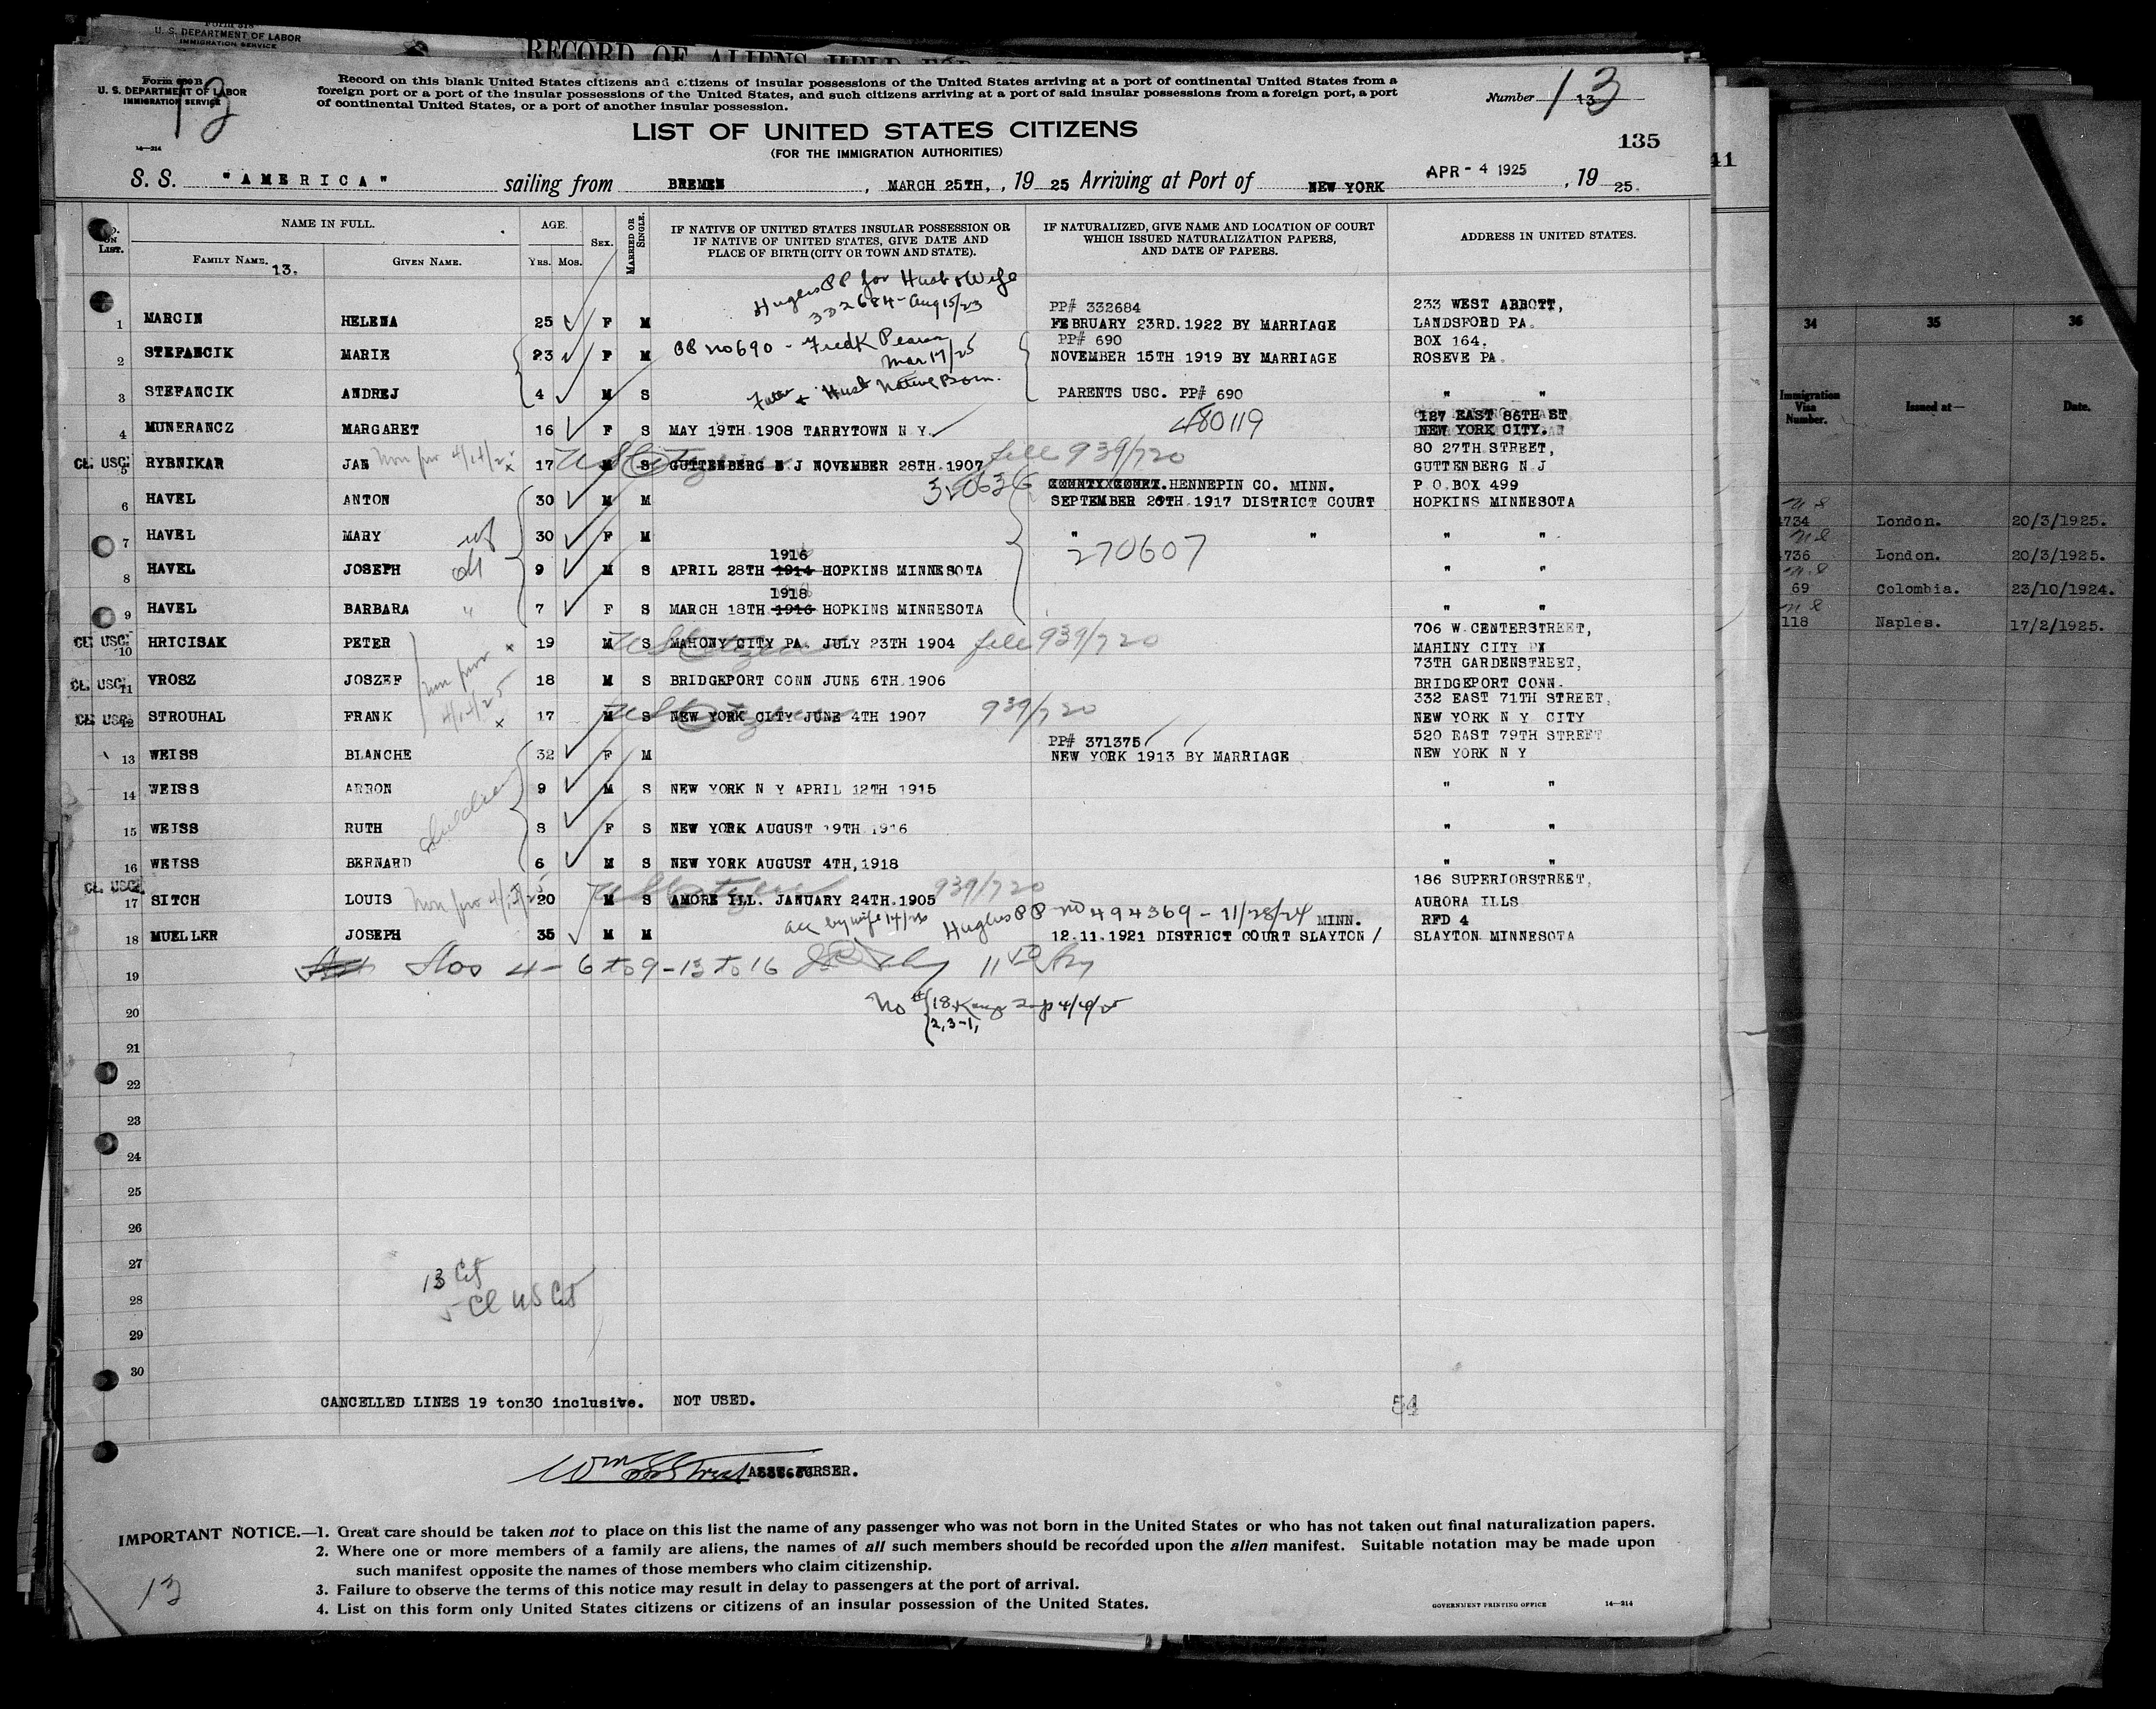 U. S. DEPARTMENT OF LABOR
IMMIGRATION SERVICE
RECORD OF ALIENS HELD FOR
U. S. DEPARTMENT OF LABOR
IMMIGRATION SERVICE
Record on this blank United States citizens and citizens of insular possessions of the United States arriving at a port of continental United States from a
foreign port or a port of the insular possessions of the United States, and such citizens arriving at a port of said insular possessions from a foreign port, a port
of continental United States, or a port of another insular possession.
Number 13
LIST OF UNITED STATES CITIZENS
(FOR THE IMMIGRATION AUTHORITIES)
135
14—314
S. S. "AMERICA" sailing from BREMEN, MARCH 25TH, , 19 25 Arriving at Port of NEW YORK APR - 4 1925 , 19 25.
NO. ON LIST. NAME IN FULL. AGE. SEX. MARRIED OR SINGLE. IF NATIVE OF UNITED STATES INSULAR POSSESSION OR IF NATIVE OF UNITED STATES, GIVE DATE AND PLACE OF BIRTH (CITY OR TOWN AND STATE). IF NATURALIZED, GIVE NAME AND LOCATION OF COURT WHICH ISSUED NATURALIZATION PAPERS, AND DATE OF PAPERS. ADDRESS IN UNITED STATES.
FAMILY NAME. 13. GIVEN NAME. YRS. MOS.
Hughes PP for Husb & Wife
332684 - Aug 15/23
PP# 332684 233 WEST ABBOTT,
1 MARCIN HELENA 25 F M FEBRUARY 23RD.1922 BY MARRIAGE LANDSFORD PA.
PP no 690 - Fredk Pearson PP# 690 BOX 164.
2 STEFANCIK MARIE 23 F M Mar 17/25 NOVEMBER 15TH 1919 BY MARRIAGE ROSEVE PA.
Father & Husb Native Born.
3 STEFANCIK ANDREJ 4 M S PARENTS USC. PP# 690 " "
480119 127 EAST 86TH ST
4 MUNERANCZ MARGARET 16 F S MAY 19TH 1908 TARRYTOWN N Y. NEW YORK CITY.
80 27TH STREET,
CL. USC. 5 RYBNIKAR JAN 17 US Citizen M S GUTTENBERG N J NOVEMBER 28TH.1907 file 939/720 GUTTENBERG N J
COUNTY COURT.HENNEPIN CO. MINN. P.O.BOX 499
6 HAVEL ANTON 30 M M SEPTEMBER 26TH.1917 DISTRICT COURT HOPKINS MINNESOTA
7 HAVEL MARY wf 30 F M " " " "
1916 270607
8 HAVEL JOSEPH 9 M S APRIL 28TH 1914 HOPKINS MINNESOTA " "
1918
9 HAVEL BARBARA " 7 F S MARCH 18TH 1916 HOPKINS MINNESOTA " "
706 W.CENTERSTREET,
CL. USC. 10 HRICISAK PETER 19 US Citizen M S MAHONY CITY PA. JULY 23TH 1904 file 939/720 MAHINY CITY
73TH GARDENSTREET,
CL. USC. 11 VROSZ JOSZEF 18 M S BRIDGEPORT CONN JUNE 6TH.1906 BRIDGEPORT CONN.
332 EAST 71TH STREET,
CL. USC. 12 STROUHAL FRANK 17 US Citizen M S NEW YORK CITY JUNE 4TH 1907 939/720 NEW YORK N Y CITY
PP# 371375 520 EAST 79TH STREET
13 WEISS BLANCHE 32 F M NEW YORK 1913 BY MARRIAGE NEW YORK N Y
14 WEISS ARRON 9 M S NEW YORK N Y APRIL 12TH 1915 " "
children
15 WEISS RUTH 8 F S NEW YORK AUGUST 19TH 1916 " "
16 WEISS BERNARD 6 M S NEW YORK AUGUST 4TH,1918 " "
186 SUPERIORSTREET,
CL. USC. 17 SITCH LOUIS 20 US Citizen M S AMORE ILL. JANUARY 24TH.1905 939/720 AURORA ILLS
Hughes PP no 494369 - 11/28/24 MINN. RFD 4
18 MUELLER JOSEPH 35 M M 12.11.1921 DISTRICT COURT SLAYTON / SLAYTON MINNESOTA
19 Nos 4 - 6 to 9 - 13 to 16
No 18
20 2, 3-1,
21
22
23
24
25
26
27
13 Cit
28 5 Cl US Cit
29
30
CANCELLED LINES 19 ton30 inclusive. NOT USED.
54
ASST. PURSER.
IMPORTANT NOTICE.—1. Great care should be taken not to place on this list the name of any passenger who was not born in the United States or who has not taken out final naturalization papers.
2. Where one or more members of a family are aliens, the names of all such members should be recorded upon the alien manifest. Suitable notation may be made upon
such manifest opposite the names of those members who claim citizenship.
3. Failure to observe the terms of this notice may result in delay to passengers at the port of arrival.
4. List on this form only United States citizens or citizens of an insular possession of the United States.
GOVERNMENT PRINTING OFFICE 14—314
13
41
34 35 36
Immigration Visa Number. Issued at— Date.
734 London. 20/3/1925.
736 London. 20/3/1925.
69 Colombia. 23/10/1924.
118 Naples. 17/2/1925.